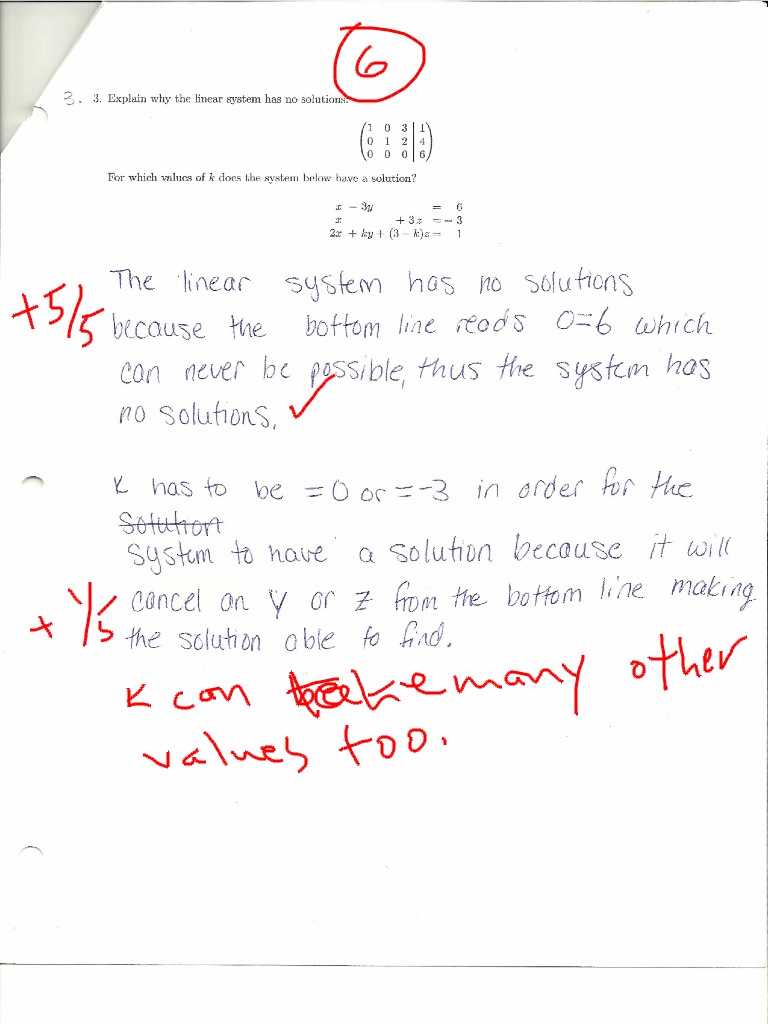 6
3. 3. Explain why the linear system has no solutions.
1 0 3 | 1
0 1 2 | 4
0 0 0 | 6
For which values of k does the system below have a solution?
x − 3y = 6
x + 3z = − 3
2x + ky + (3 − k)z = 1
The linear system has no solutions
+5/5 because the bottom line reads 0=6 which
can never be possible, thus the system has
no solutions. ✓
K has to be =0 or =-3 in order for the
Solution
system to have a solution because it will
cancel an y or z from the bottom line making
+ 1/5 the solution able to find.
k can be many other
values too.